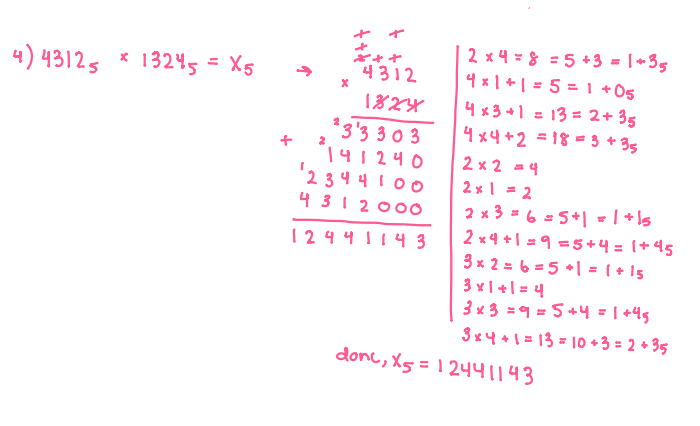 4) 4312₅ × 1324₅ = X₅ →
+ +
+
+ + +
4312
× 1324
2 2 1
+ 33303
141240
1
234400
4312000
12441143
2 × 4 = 8 = 5 + 3 = 1 + 3₅
4 × 1 + 1 = 5 = 1 + 0₅
4 × 3 + 1 = 13 = 2 + 3₅
4 × 4 + 2 = 18 = 3 + 3₅
2 × 2 = 4
2 × 1 = 2
2 × 3 = 6 = 5 + 1 = 1 + 1₅
2 × 4 + 1 = 9 = 5 + 4 = 1 + 4₅
3 × 2 = 6 = 5 + 1 = 1 + 1₅
3 × 1 + 1 = 4
3 × 3 = 9 = 5 + 4 = 1 + 4₅
3 × 4 + 1 = 13 = 10 + 3 = 2 + 3₅
donc, X₅ = 12441143